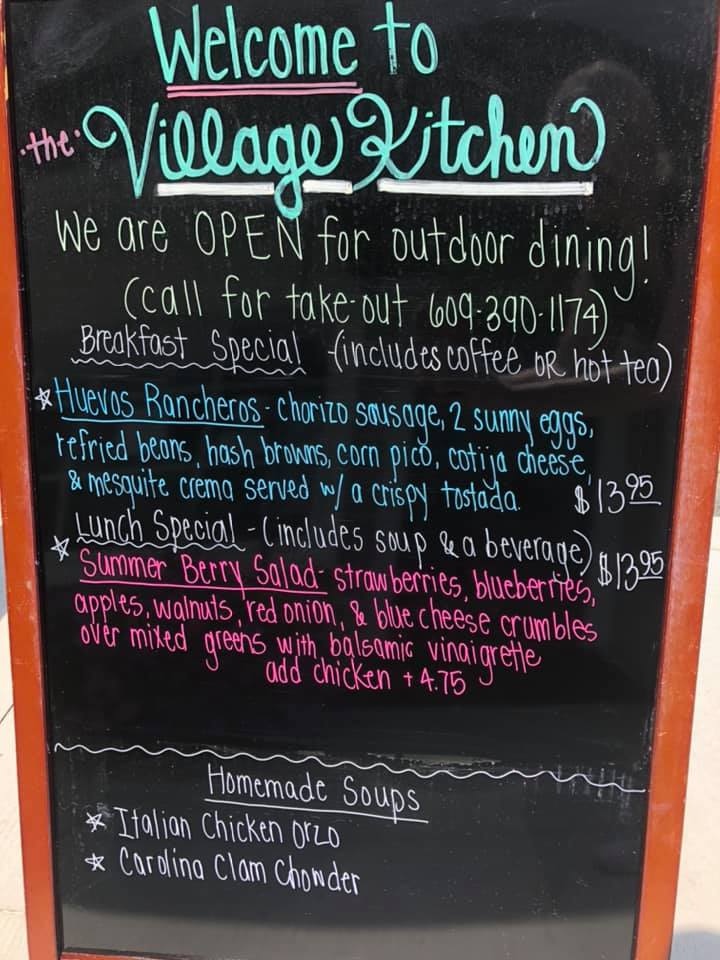 Welcome to
·the· Village Kitchen
We are OPEN for outdoor dining!
(call for take-out 609-390-1174)
Breakfast Special (includes coffee OR hot tea)
☆ Huevos Rancheros - chorizo sausage, 2 sunny eggs,
refried beans, hash browns, corn pico, cotija cheese,
& mesquite crema served w/ a crispy tostada. $13.95
Lunch Special - (includes soup & a beverage) $13.95
☆ Summer Berry Salad - strawberries, blueberries,
apples, walnuts, red onion, & blue cheese crumbles
over mixed greens with balsamic vinaigrette
add chicken + 4.75
Homemade Soups
☆ Italian Chicken Orzo
☆ Carolina Clam Chowder